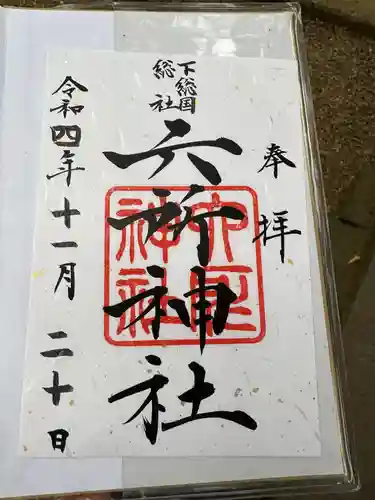 奉拝
下総国
総社
六所神社
六所神社
令和四年十一月二十日